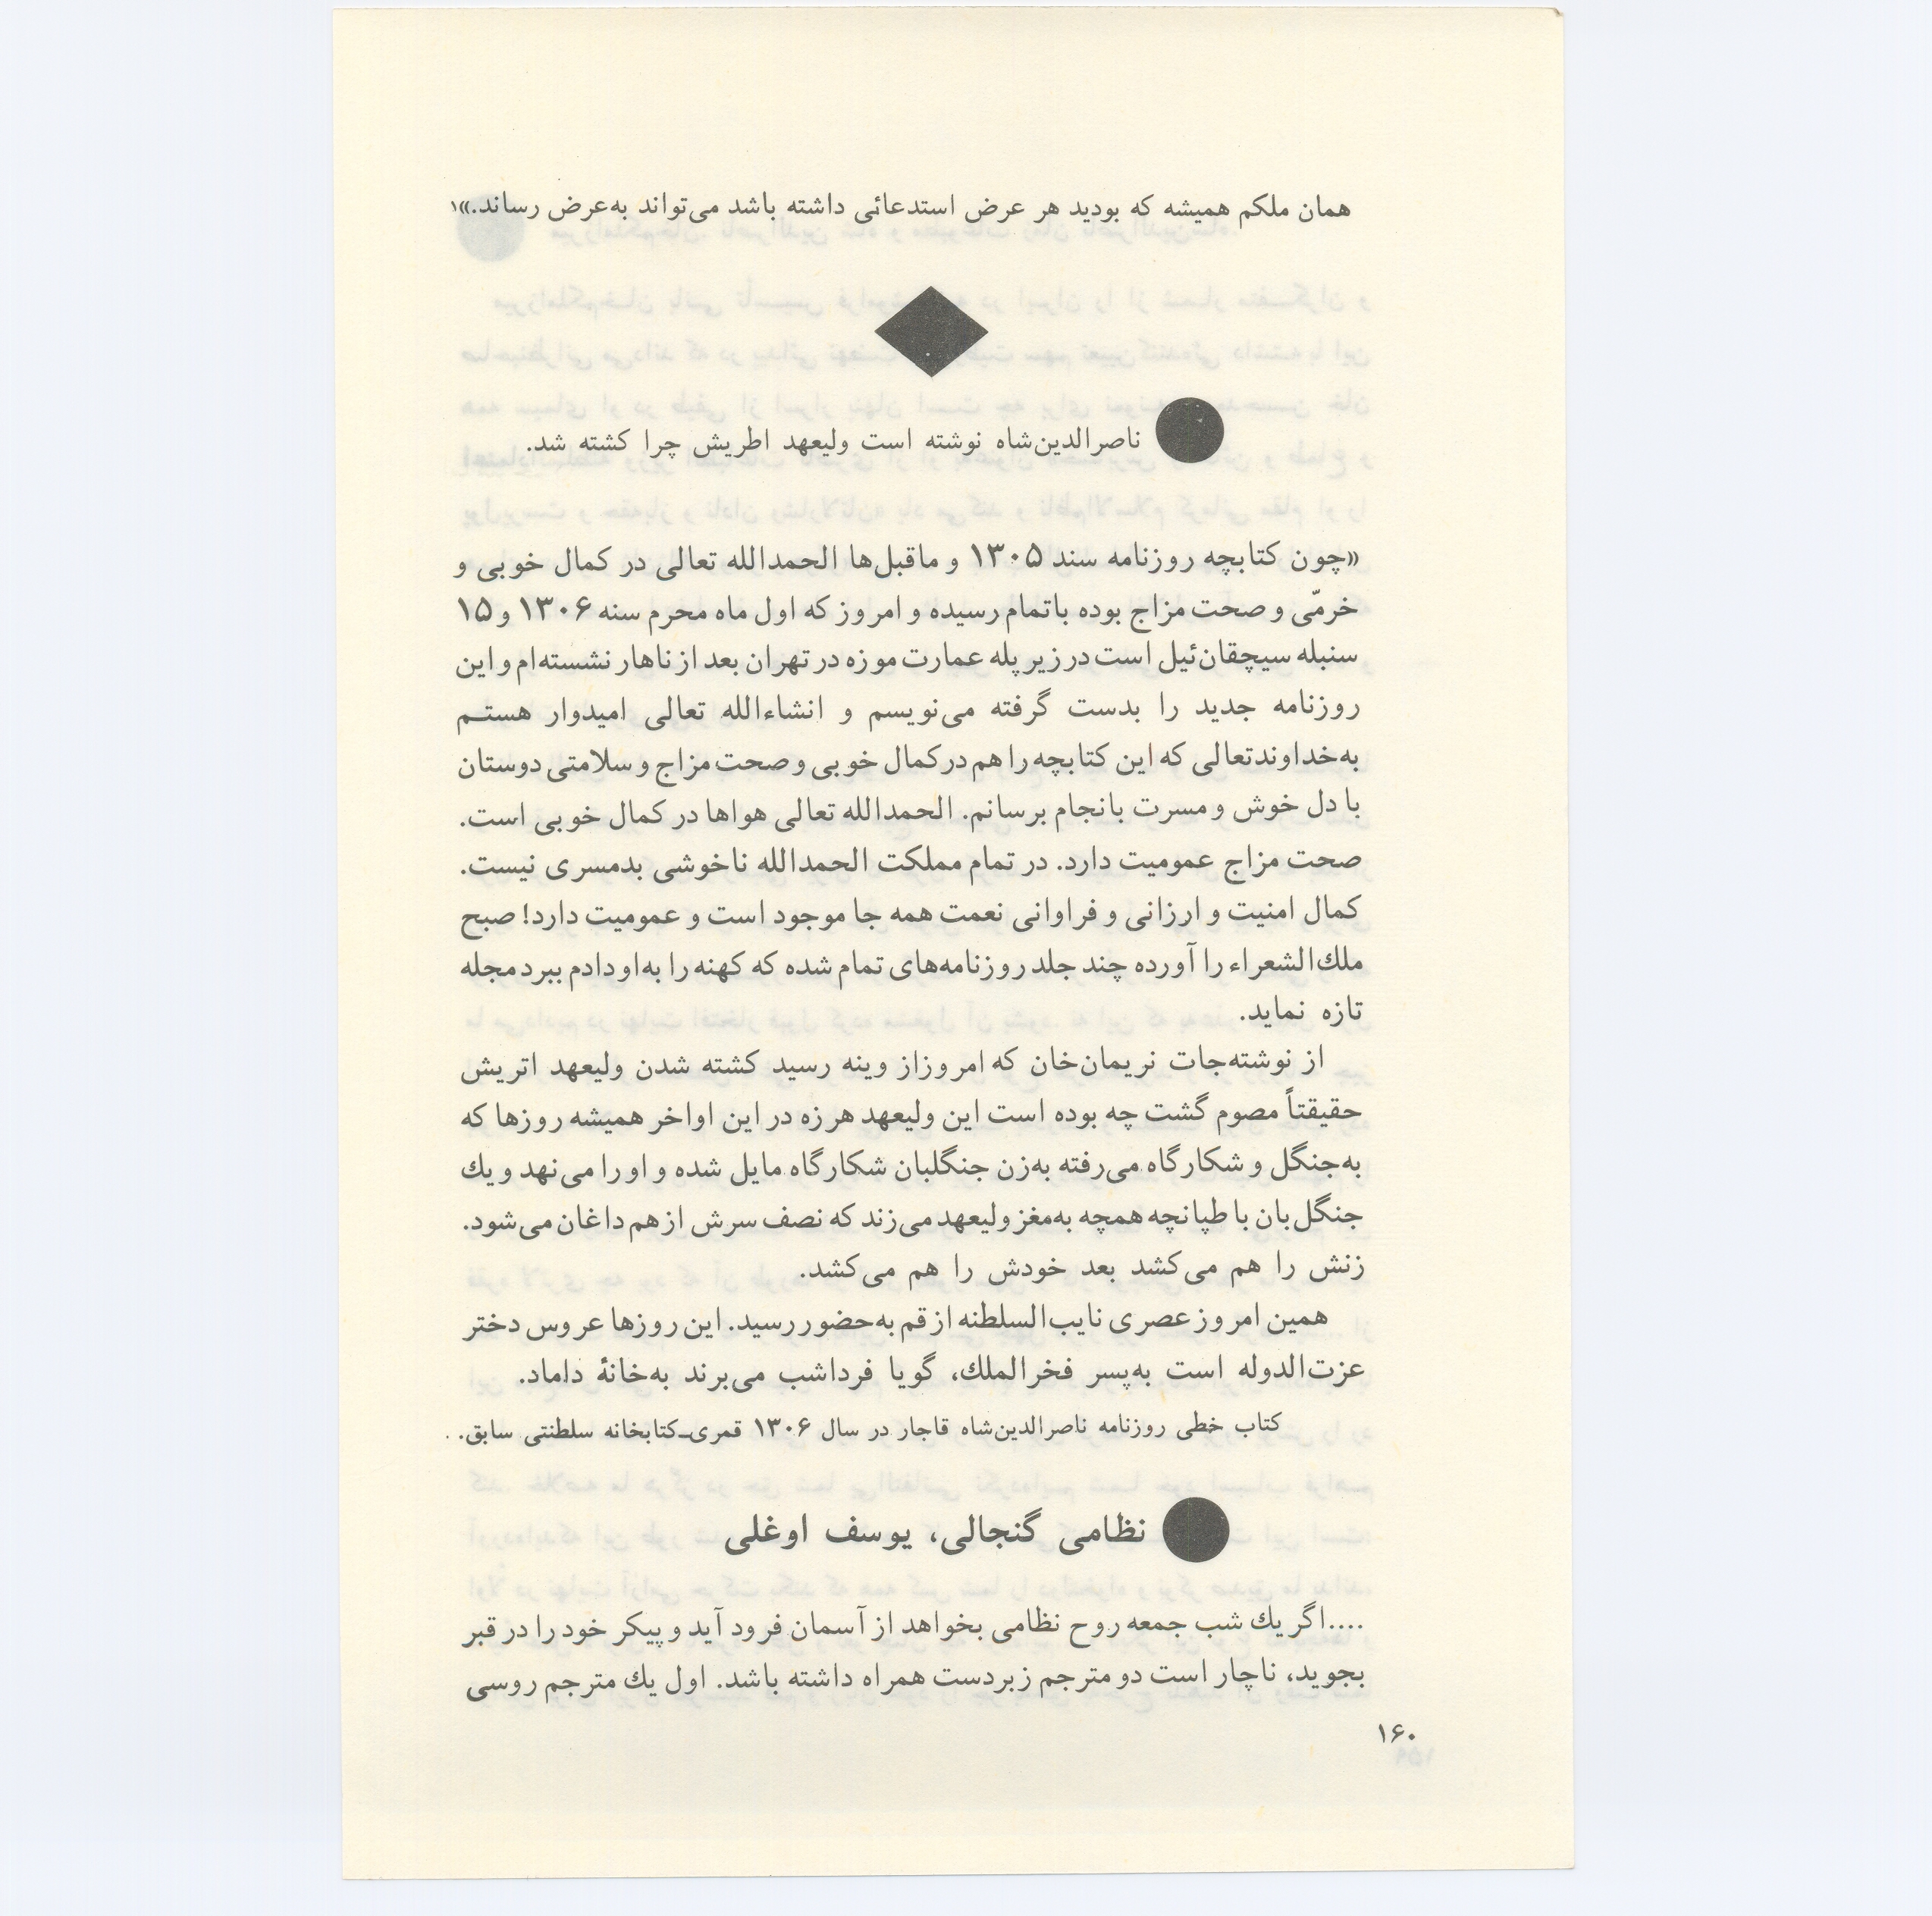 همان ملکم همیشه که بودید هر عرض استدعائی داشته باشد می‌تواند به‌عرض رساند.»۱
ناصرالدین‌شاه نوشته است ولیعهد اطریش چرا کشته شد.
«چون کتابچه روزنامه سند ۱۳۰۵ و ماقبل‌ها الحمدالله تعالی در کمال خوبی و
خرمّی و صحت مزاج بوده باتمام رسیده و امروز که اول ماه محرم سنه ۱۳۰۶ و ۱۵
سنبله سیچقان‌ئیل است در زیر پله عمارت موزه در تهران بعد از ناهار نشسته‌ام و این
روزنامه جدید را بدست گرفته می‌نویسم و انشاءالله تعالی امیدوار هستم
به‌خداوندتعالی که این کتابچه را هم در کمال خوبی و صحت مزاج و سلامتی دوستان
با دل خوش و مسرت بانجام برسانم. الحمدالله تعالی هواها در کمال خوبی است.
صحت مزاج عمومیت دارد. در تمام مملکت الحمدالله ناخوشی بدمسری نیست.
کمال امنیت و ارزانی و فراوانی نعمت همه جا موجود است و عمومیت دارد! صبح
ملك‌الشعراء را آورده چند جلد روزنامه‌های تمام شده که کهنه را به‌او دادم ببرد مجله
تازه نماید.
از نوشته‌جات نریمان‌خان که امروزاز وینه رسید کشته شدن ولیعهد اتریش
حقیقتاً مصوم گشت چه بوده است این ولیعهد هرزه در این اواخر همیشه روزها که
به‌جنگل و شکارگاه می‌رفته به‌زن جنگلبان شکارگاه مایل شده و او را می‌نهد و يك
جنگل‌بان با طپانچه همچه به‌مغز ولیعهد می‌زند که نصف سرش از هم داغان می‌شود.
زنش را هم می‌کشد بعد خودش را هم می‌کشد.
همین امروز عصری نایب‌السلطنه از قم به‌حضور رسید. این روزها عروس دختر
عزت‌الدوله است به‌پسر فخرالملك، گویا فرداشب می‌برند به‌خانهٔ داماد.
کتاب خطی روزنامه ناصرالدین‌شاه قاجار در سال ۱۳۰۶ قمری‌ـکتابخانه سلطنتی سابق.
نظامی گنجالی، یوسف اوغلی
....اگر يك شب جمعه روح نظامی بخواهد از آسمان فرود آید و پیکر خود را در قبر
بجوید، ناچار است دو مترجم زبردست همراه داشته باشد. اول يك مترجم روسی
۱۶۰